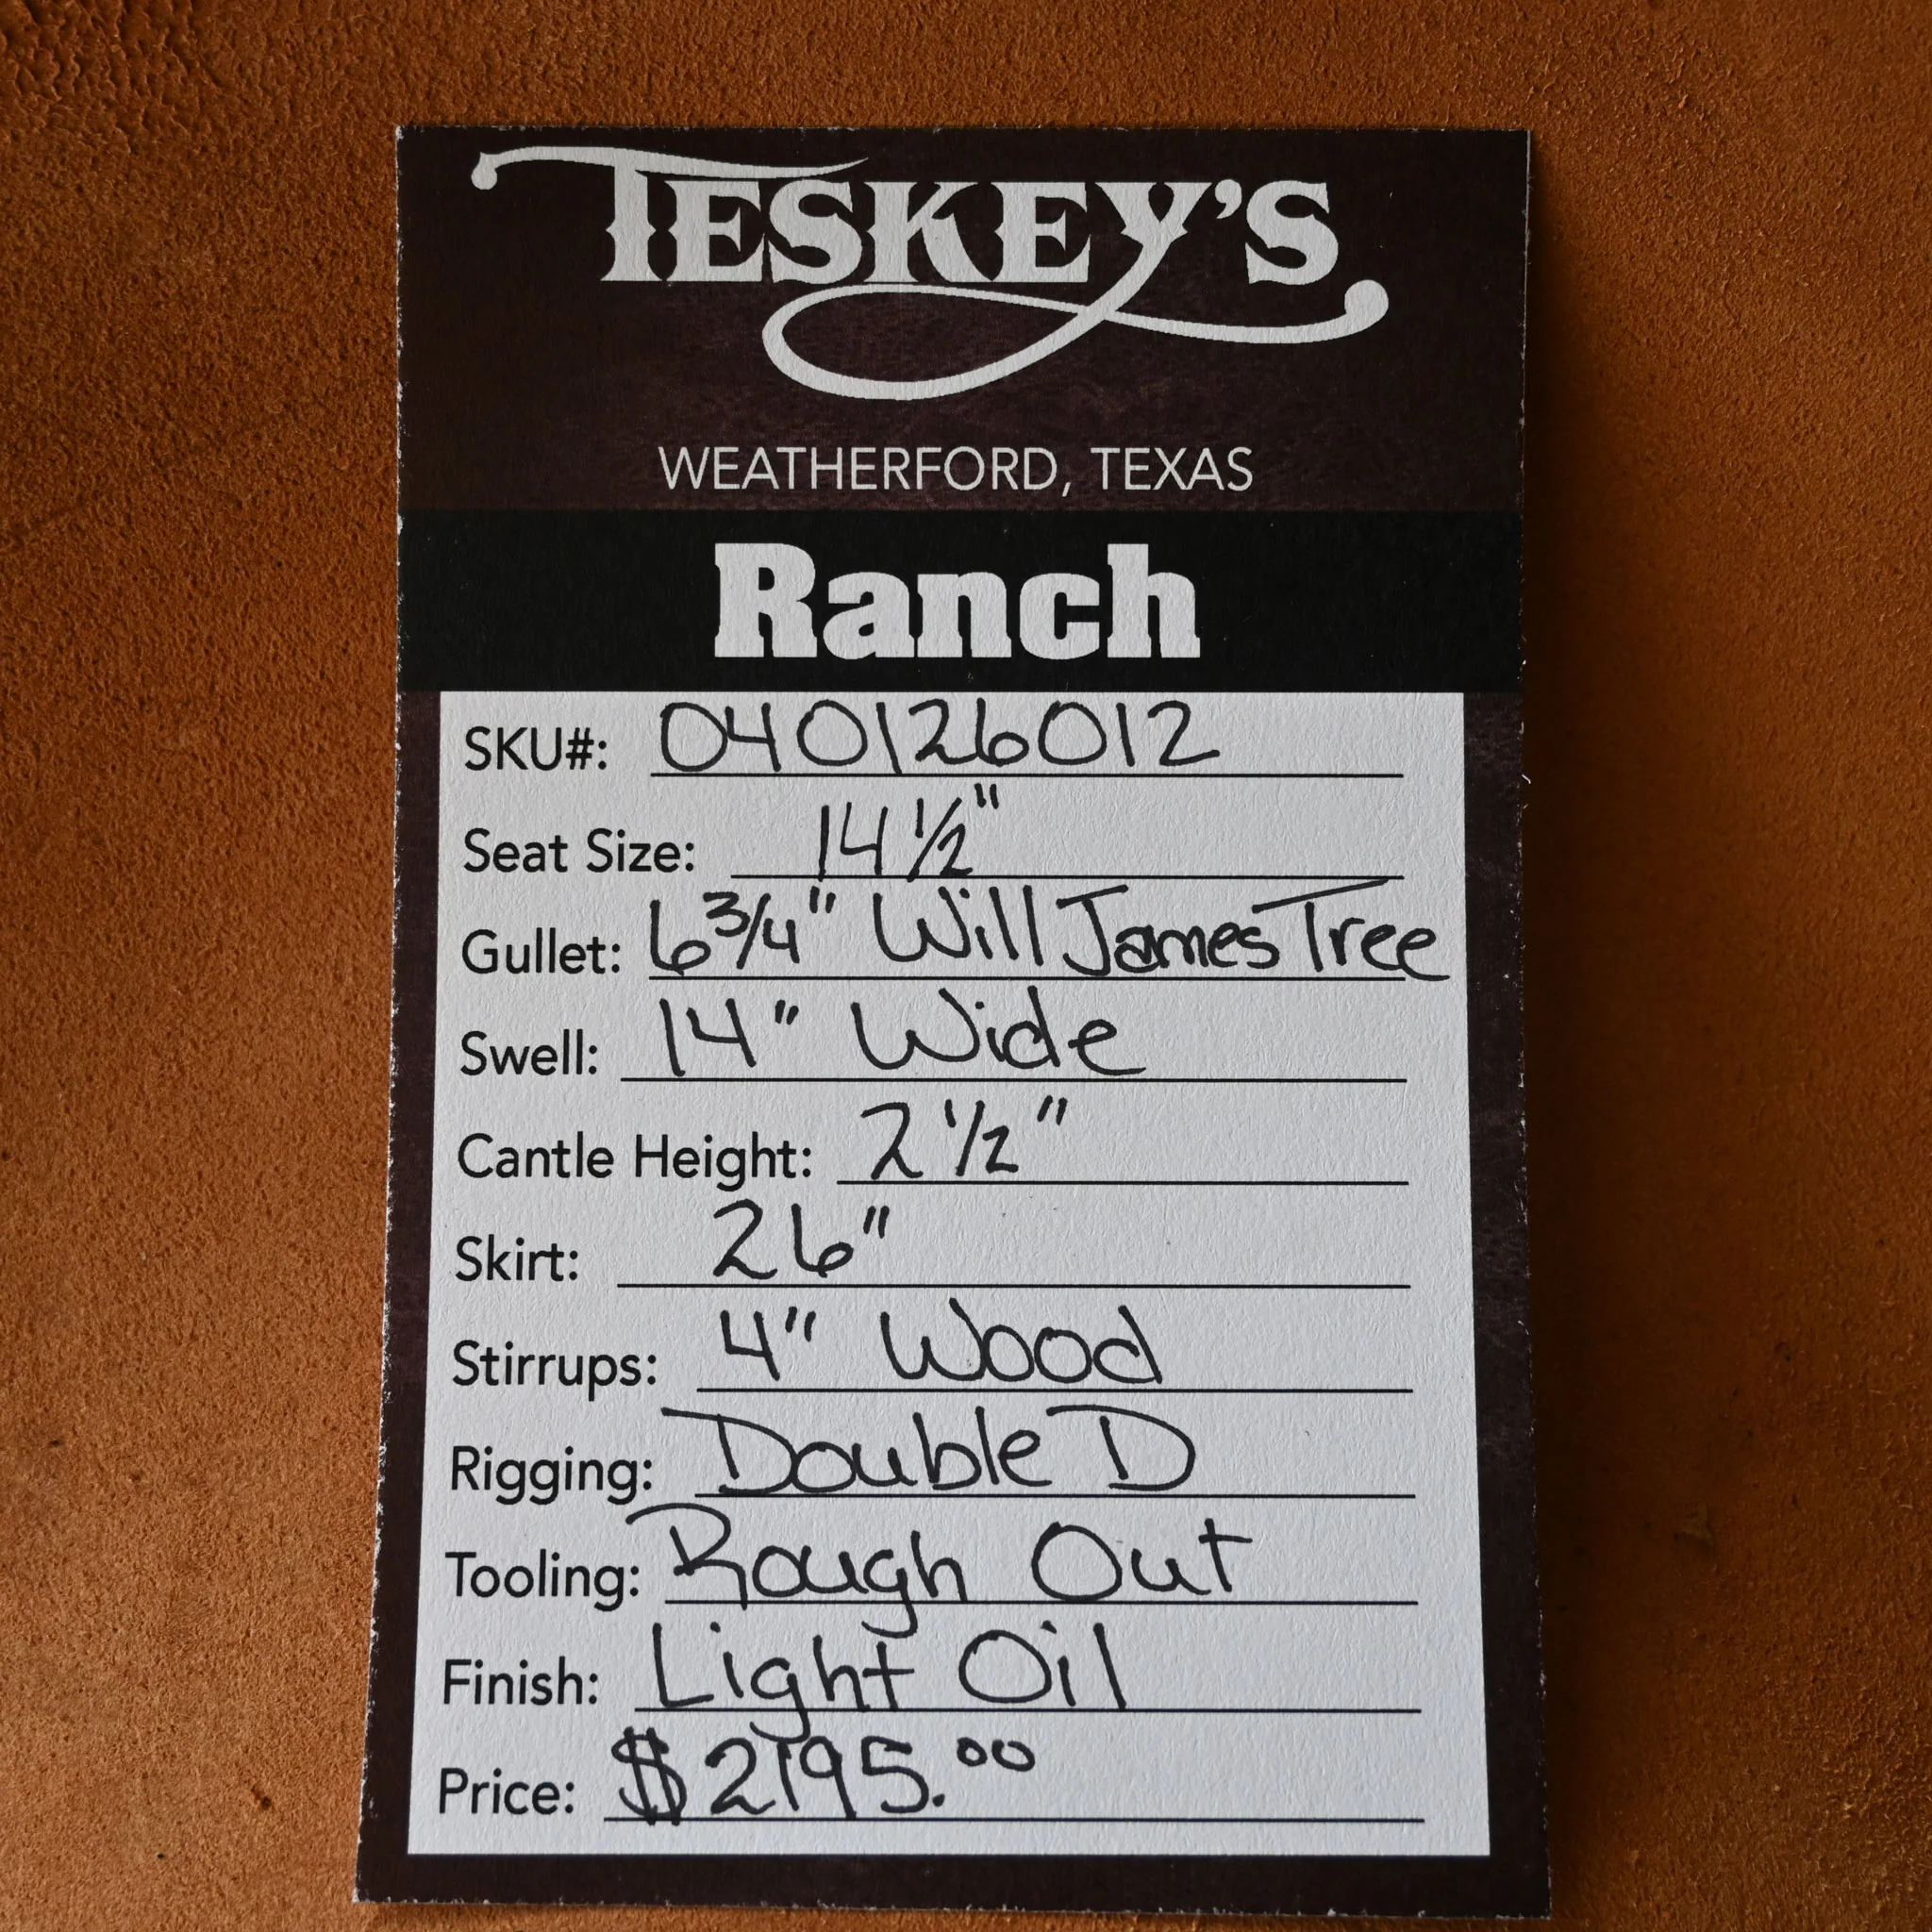 TESKEY'S
WEATHERFORD, TEXAS
Ranch
SKU#: 040126012
Seat Size: 14 1/2"
Gullet: 6 3/4" Will James Tree
Swell: 14" Wide
Cantle Height: 2 1/2"
Skirt: 26"
Stirrups: 4" Wood
Rigging: Double D
Tooling: Rough Out
Finish: Light Oil
Price: $2195.00